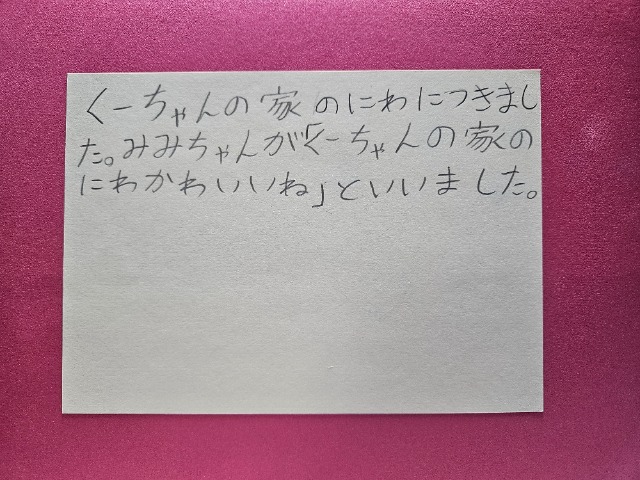 くーちゃんの家のにわにつきまし
た。みみちゃんが「くーちゃんの家の
にわかわいいね」といいました。